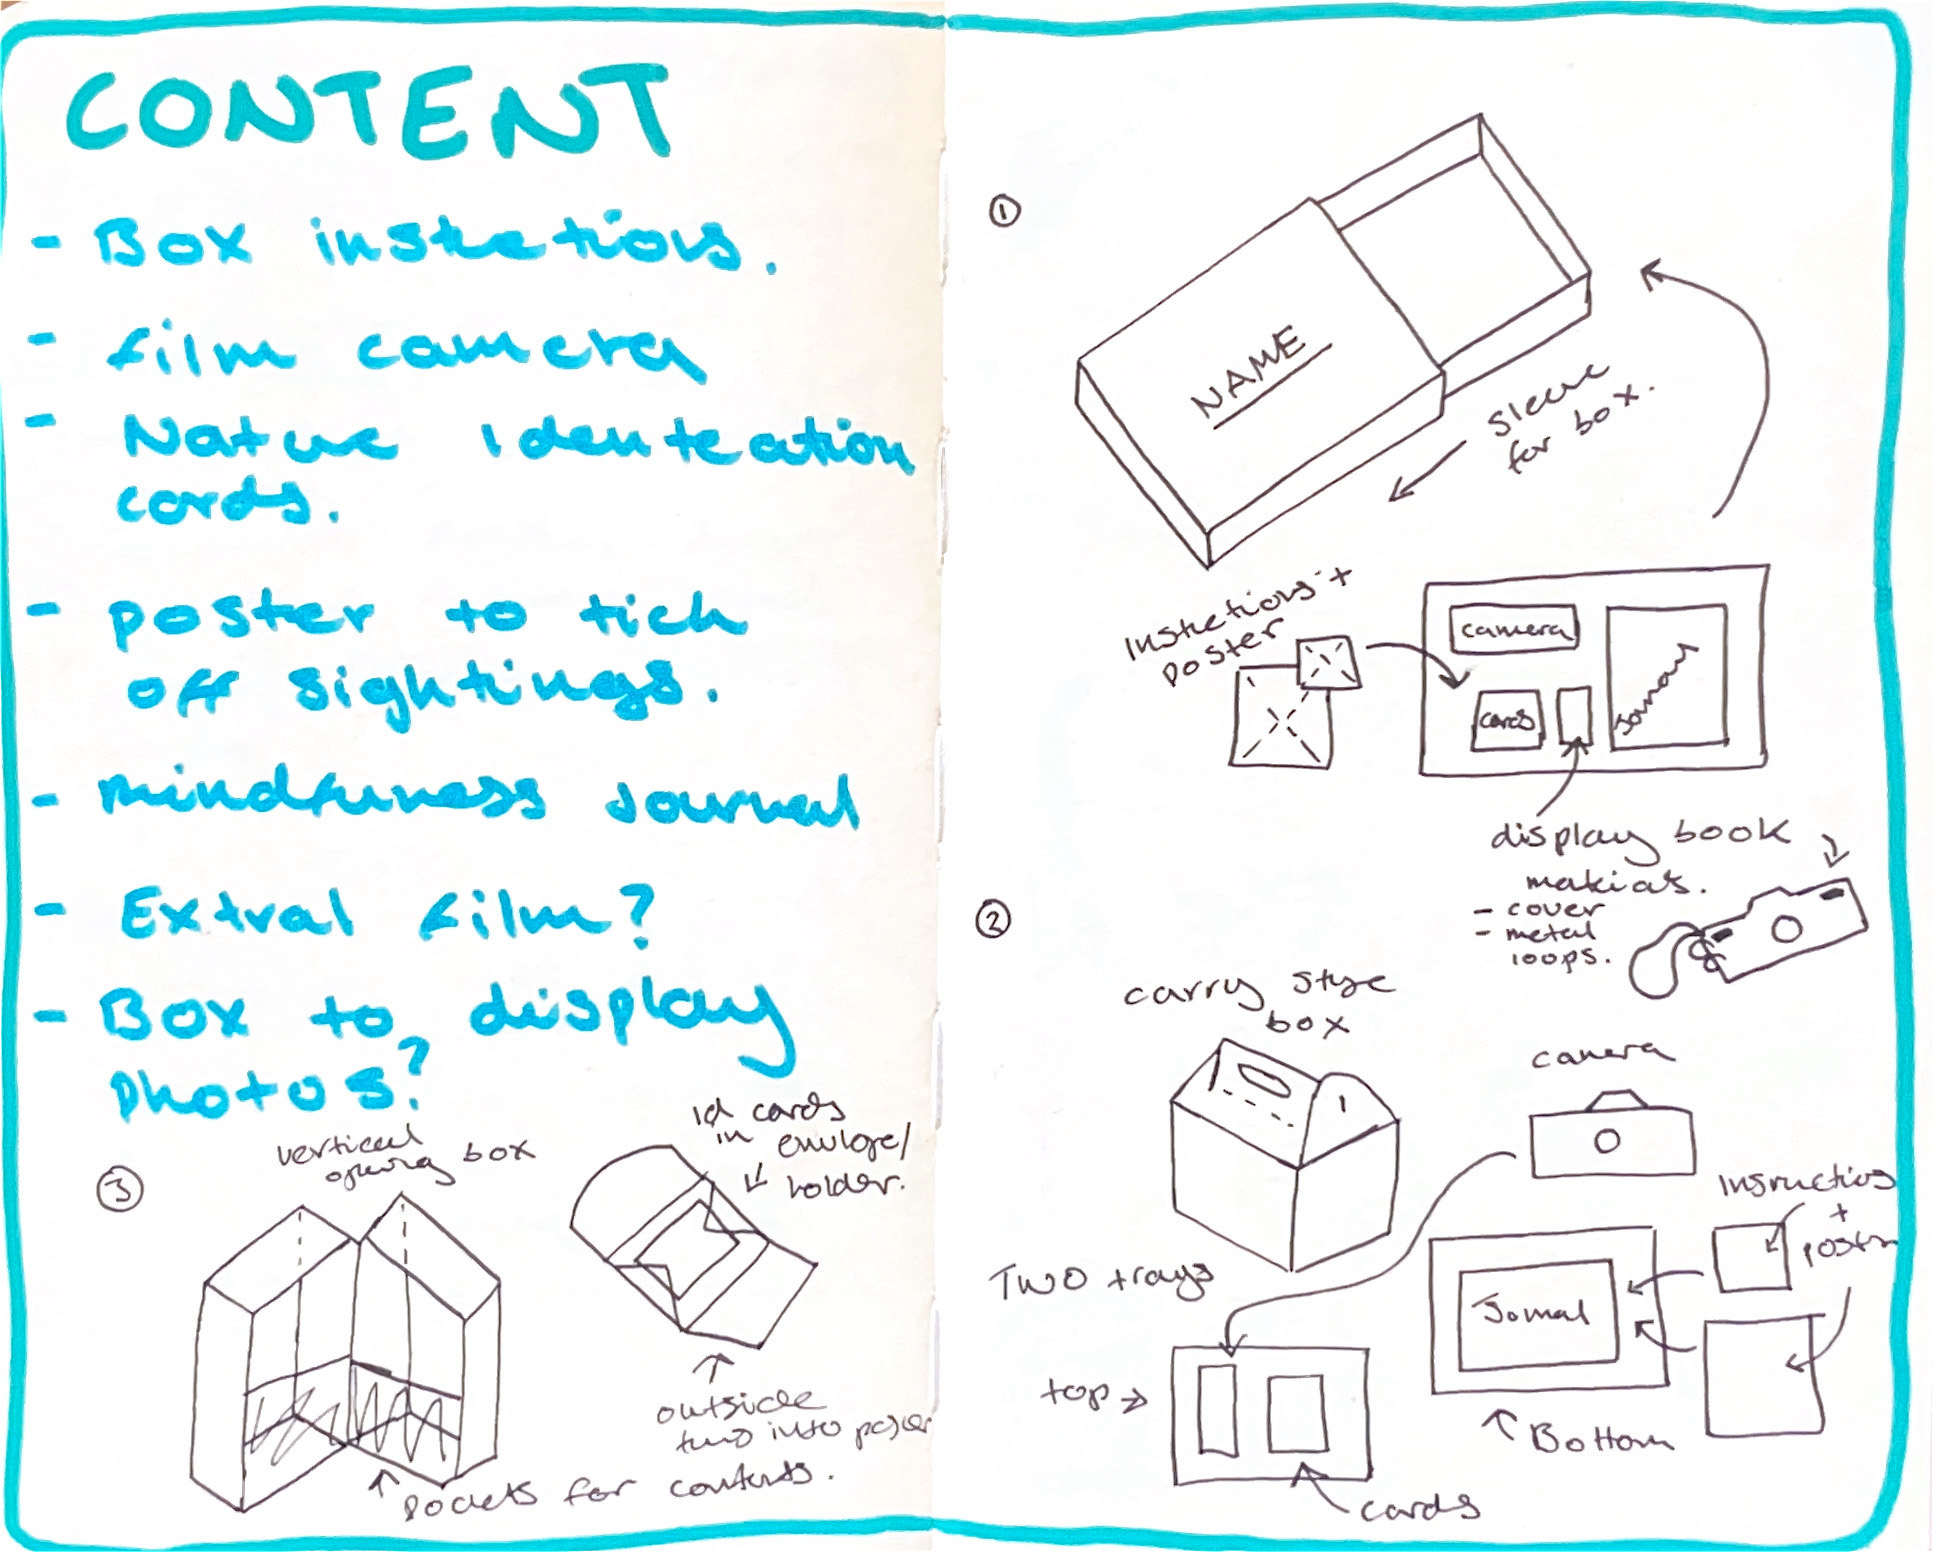 CONTENT
- Box instetions.
- film camera
- Nature identcation
cards.
- poster to tick
off sightings.
- mindfuness Journal
- Extral film?
- Box to display
photos?
③
vertical
opening box
id cards
in envlope/
holder.
outside
into poster
pockets for contents.
①
NAME
sleeve
for box.
Instetions +
poster
camera
cards
Jornal
display book
makials.
- cover
- metal
loops.
②
carry style
box
camera
Two trays
top
cards
Jornal
Bottom
Insructios
+
poster